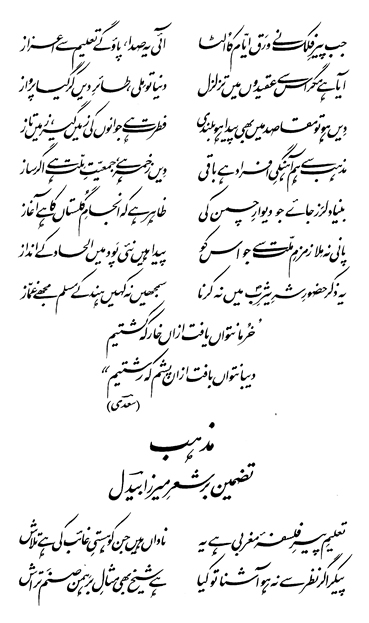 جب پیرِ فلک نے ورق ایّام کا اُلٹا آئی یہ صدا، پاؤگے تعلیم سے اعزاز
آیا ہے مگر اس سے عقیدوں میں تزلزل دنیا تو ملی، طائرِ دیں کر گیا پرواز
دیں ہو تو مقاصد میں بھی پیدا ہو بلندی فطرت ہے جوانوں کی زمیں گیر، زمیں تاز
مذہب سے ہم آہنگیِ افراد ہے باقی دیں زخمہ ہے، جمعیّتِ ملّت ہے اگر ساز
بنیاد لرز جائے جو دیوارِ چمن کی ظاہر ہے کہ انجامِ گلستاں کا ہے آغاز
پانی نہ ملا زمزمِ ملّت سے جو اس کو پیدا ہیں نئی پَود میں الحاد کے انداز
یہ ذکر حضورِ شہِ یثرب میں نہ کرنا سمجھیں نہ کہیں ہند کے مسلم مجھے غمّاز
’’خُرما نتواں یافت ازاں خار کہ کشتیم
دیبا نتواں بافت ازاں پشم کہ رشتیم‘‘
(سعدؔی)
مذہب
تضمین بر شعرِ میرزا بیدلؔ
تعلیمِ پیرِ فلسفۂ مغربی ہے یہ ناداں ہیں جن کو ہستیِ غائب کی ہے تلاش
پیکر اگر نظر سے نہ ہو آشنا تو کیا ہے شیخ بھی مثالِ برہمن صنم تراش